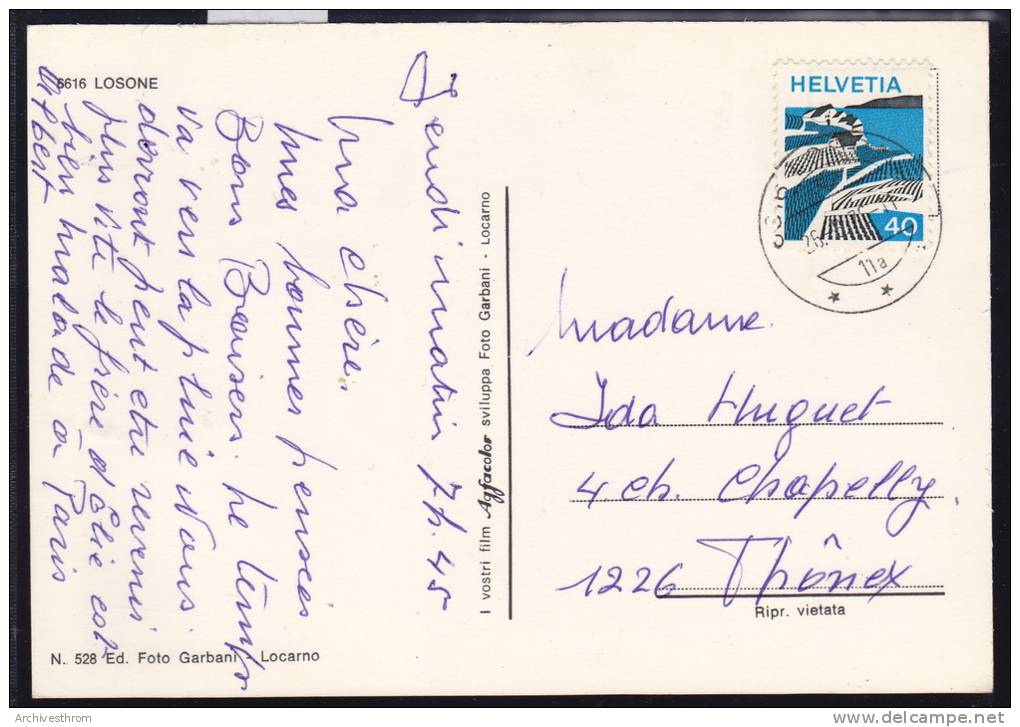 6616 LOSONE
Jeudi matin 7h. 45
Ma chère.
Mes bonnes pensées
Bons Baisers. Le temps
va vers la pluie Nous
devront peut etre revenir
plus vite le frère d'Elie est
bien malade à Paris
N. 528 Ed. Foto Garbani - Locarno
I vostri film Agfacolor sviluppa Foto Garbani - Locarno
HELVETIA
40
26.
11a
Madame.
Ida Huguet
4. ch. Chapelly.
1226 Thônex
Ripr. vietata
Archivesthrom
delcampe.net